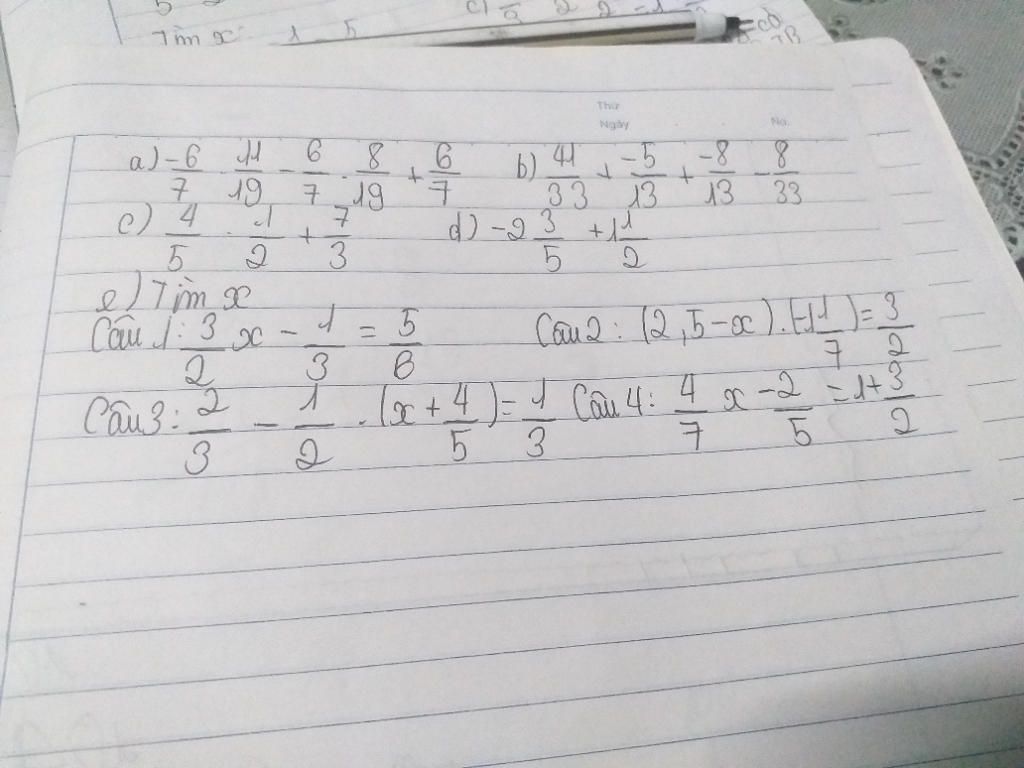 Tìm x 1 5
Thứ
Ngày No.
a) -6/7 · 11/19 - 6/7 · 8/19 + 6/7 b) 41/33 + -5/13 + -8/13 - 8/33
c) 4/5 · 1/2 + 7/3 d) -2 3/5 + 1 1/2
e) Tìm x
Câu 1: 3/2 x - 1/3 = 5/6 Câu 2: (2,5 - x) . (-1 1/7) = 3/2
Câu 3: 2/3 - 1/2 . (x + 4/5) = 1/3 Câu 4: 4/7 x - 2/5 = 1 + 3/2